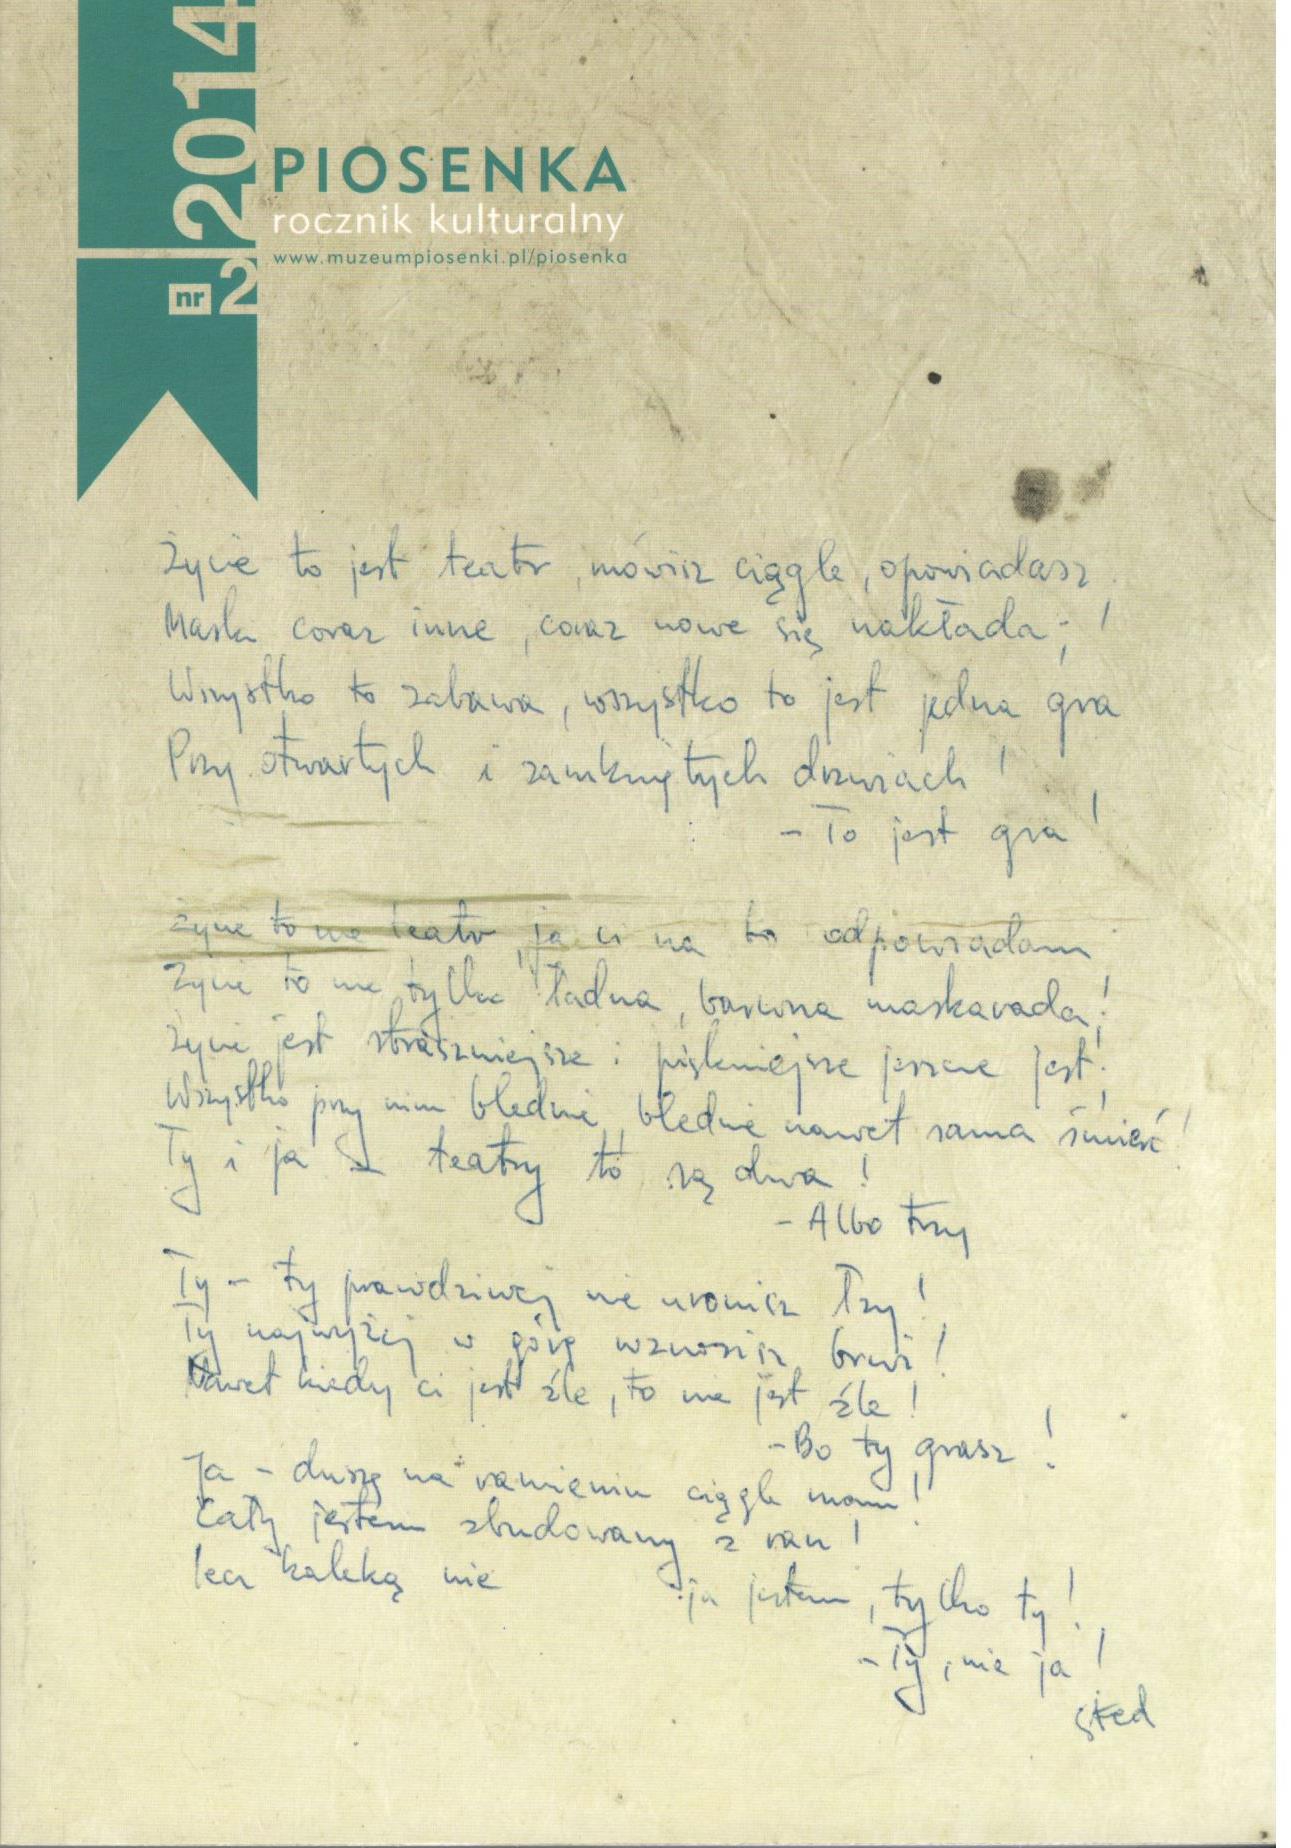 2014
nr 2
PIOSENKA
rocznik kulturalny
www.muzeumpiosenki.pl/piosenka
Życie to jest teatr, mówisz ciągle, opowiadasz
Maski coraz inne, coraz nowe się nakłada; !
Wszystko to zabawa, wszystko to jest jedna gra
Przy otwartych i zamkniętych drzwiach !
- To jest gra !
Życie to nie teatr, ja ci na to odpowiadam
Życie to nie tylko ładna, barwna maskarada;!
Życie jest straszniejsze i piękniejsze jeszcze jest;!
Wszystko przy nim blednie, blednie nawet sama śmierć!
Ty i ja - teatry to są dwa !
- Albo trzy
Ty - ty prawdziwej nie uronisz łzy !
Ty najwyżej w górę wznosisz brwi !
Nawet kiedy ci jest źle, to nie jest źle !
- Bo ty grasz !
Ja - duszę na ramieniu ciągle mam !
Cały jestem zbudowany z ran !
lecz kaleką nie ja jestem, tylko ty !
- Ty, nie ja !
sted